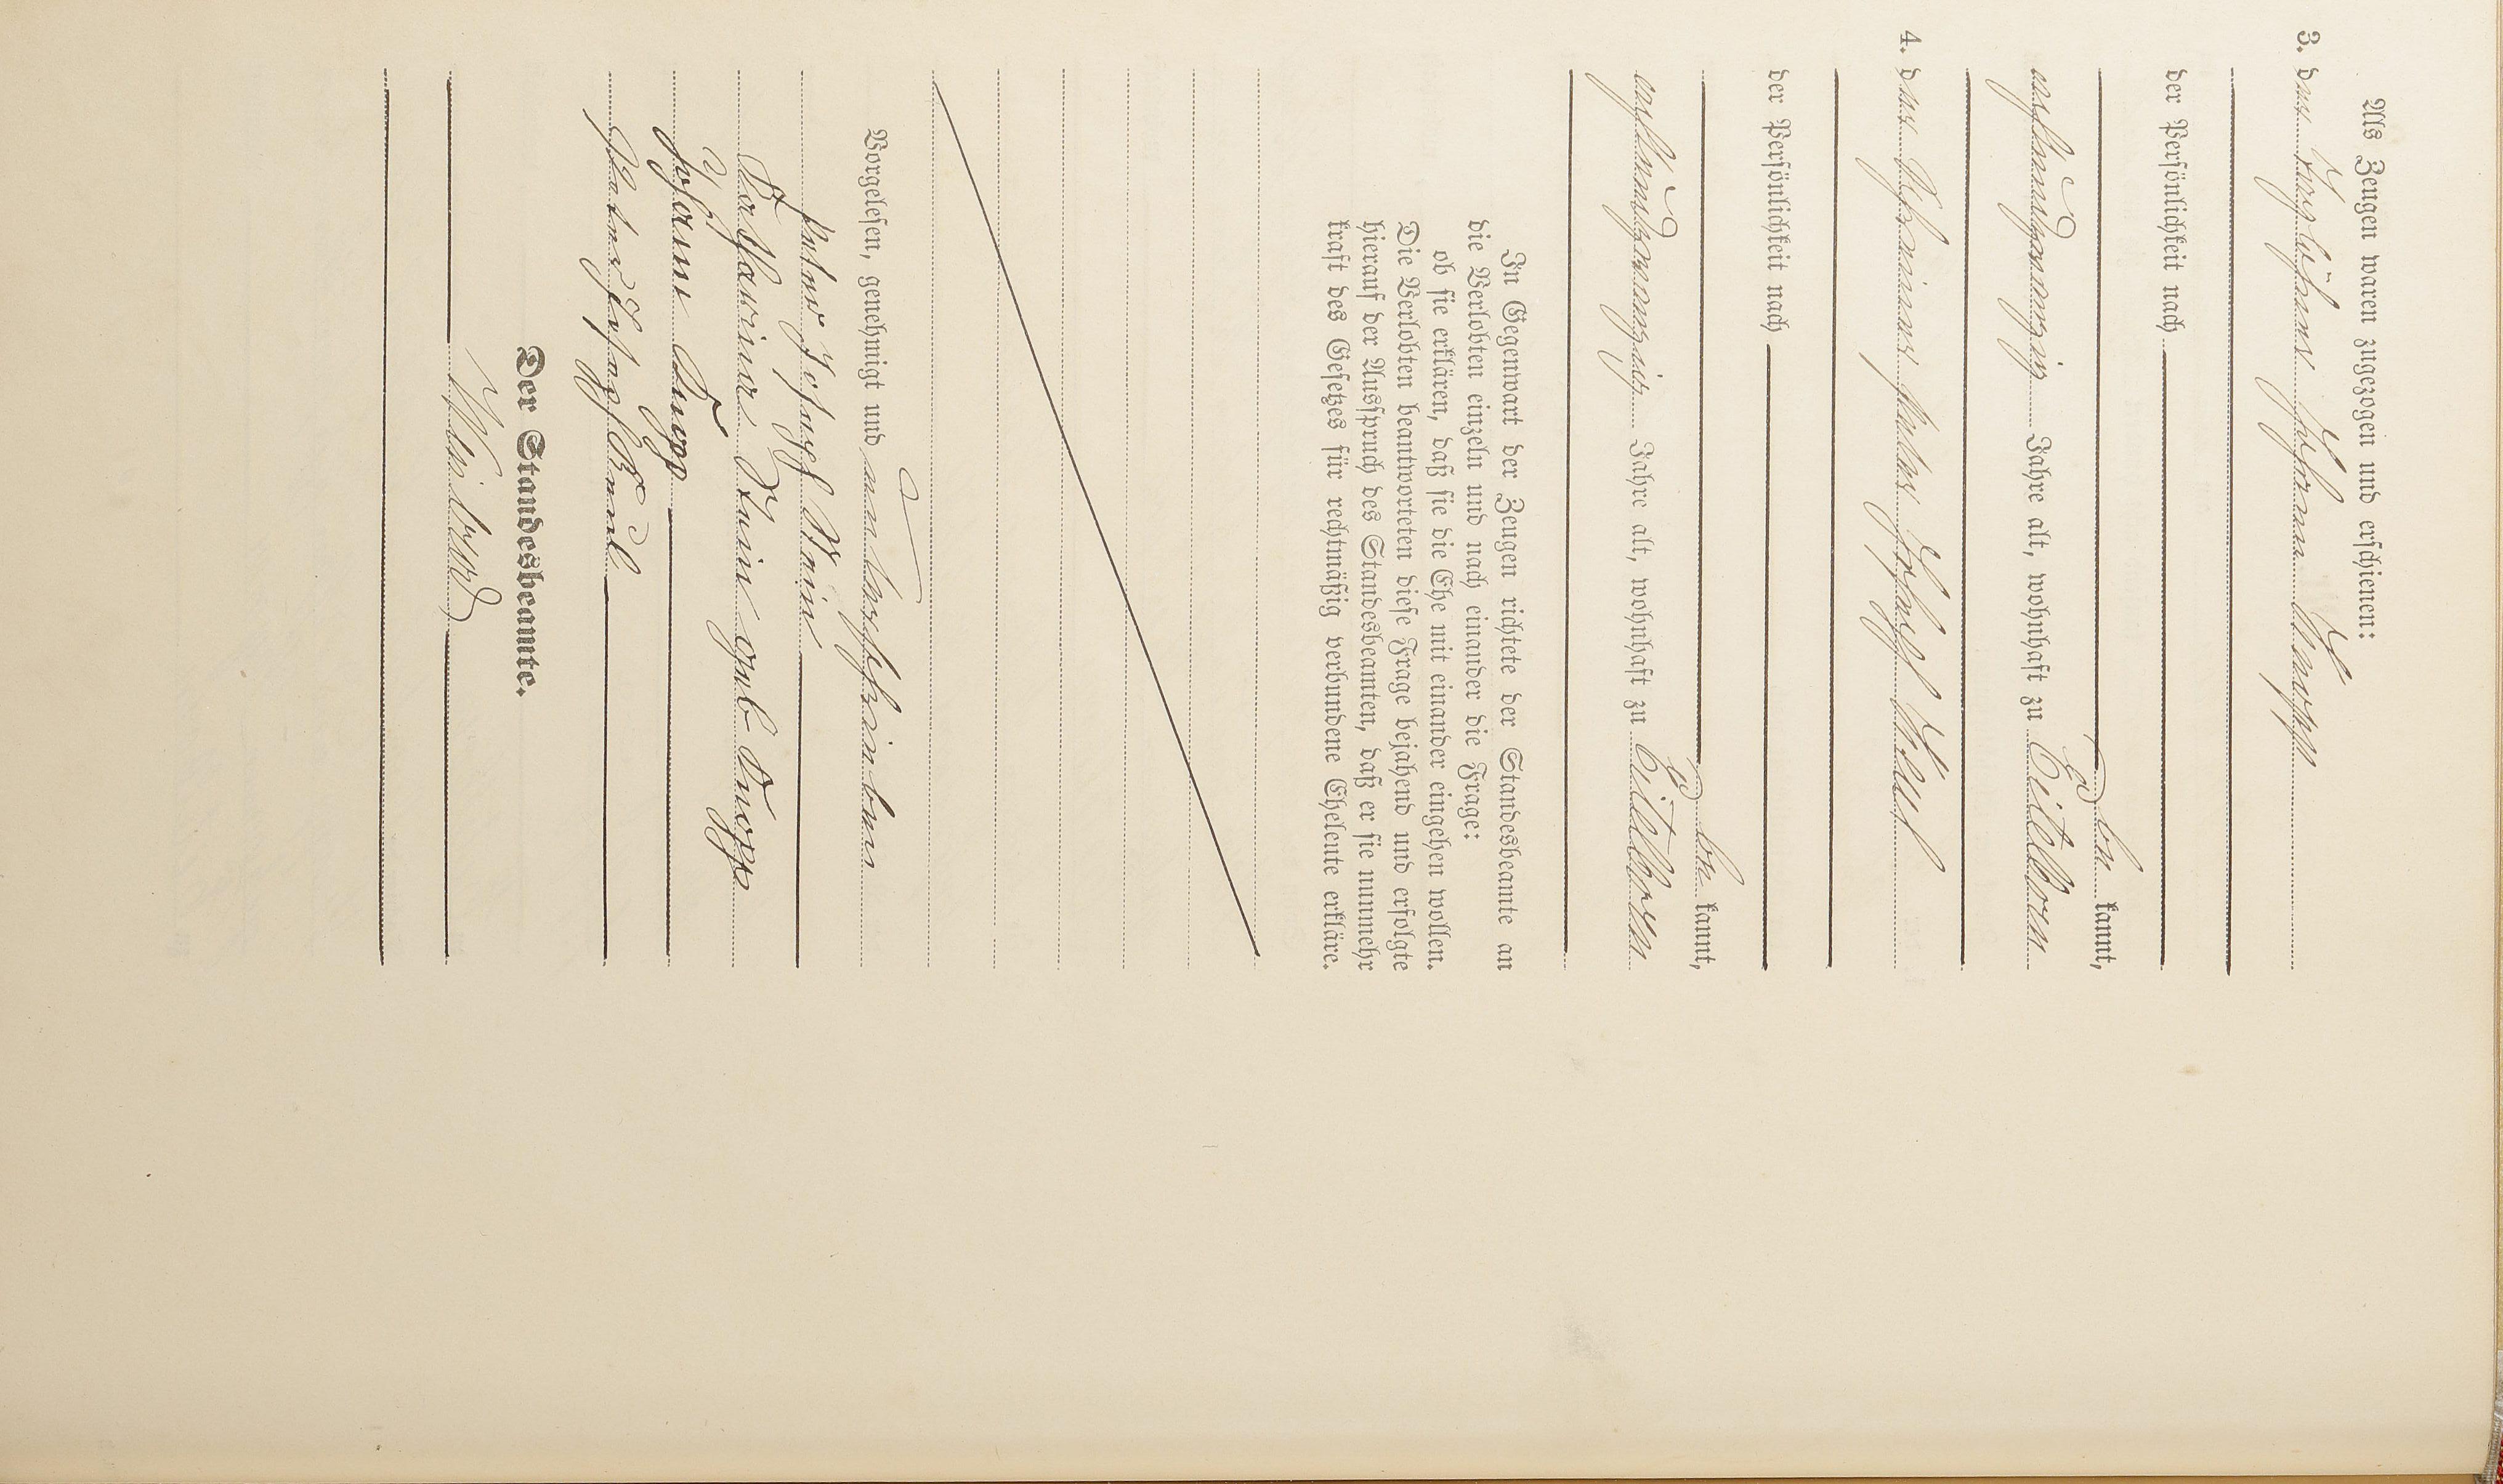 Als Zeugen waren zugezogen und erschienen:
3. der Johann Knopp
der Persönlichkeit nach
be kannt,
achtundzwanzig Jahre alt, wohnhaft zu Eitelborn
4. der Peter Joseph
der Persönlichkeit nach
be kannt,
achtundzwanzig Jahre alt, wohnhaft zu Eitelborn
In Gegenwart der Zeugen richtete der Standesbeamte an
die Verlobten einzeln und nach einander die Frage:
ob sie erklären, daß sie die Ehe mit einander eingehen wollen.
Die Verlobten beantworteten diese Frage bejahend und erfolgte
hierauf der Ausspruch des Standesbeamten, daß er sie nunmehr
kraft des Gesetzes für rechtmäßig verbundene Eheleute erkläre.
Vorgelesen, genehmigt und unterschrieben
Peter Joseph
Katharina geb Knopp
Johann Knopp
Peter Joseph
Der Standesbeamte.